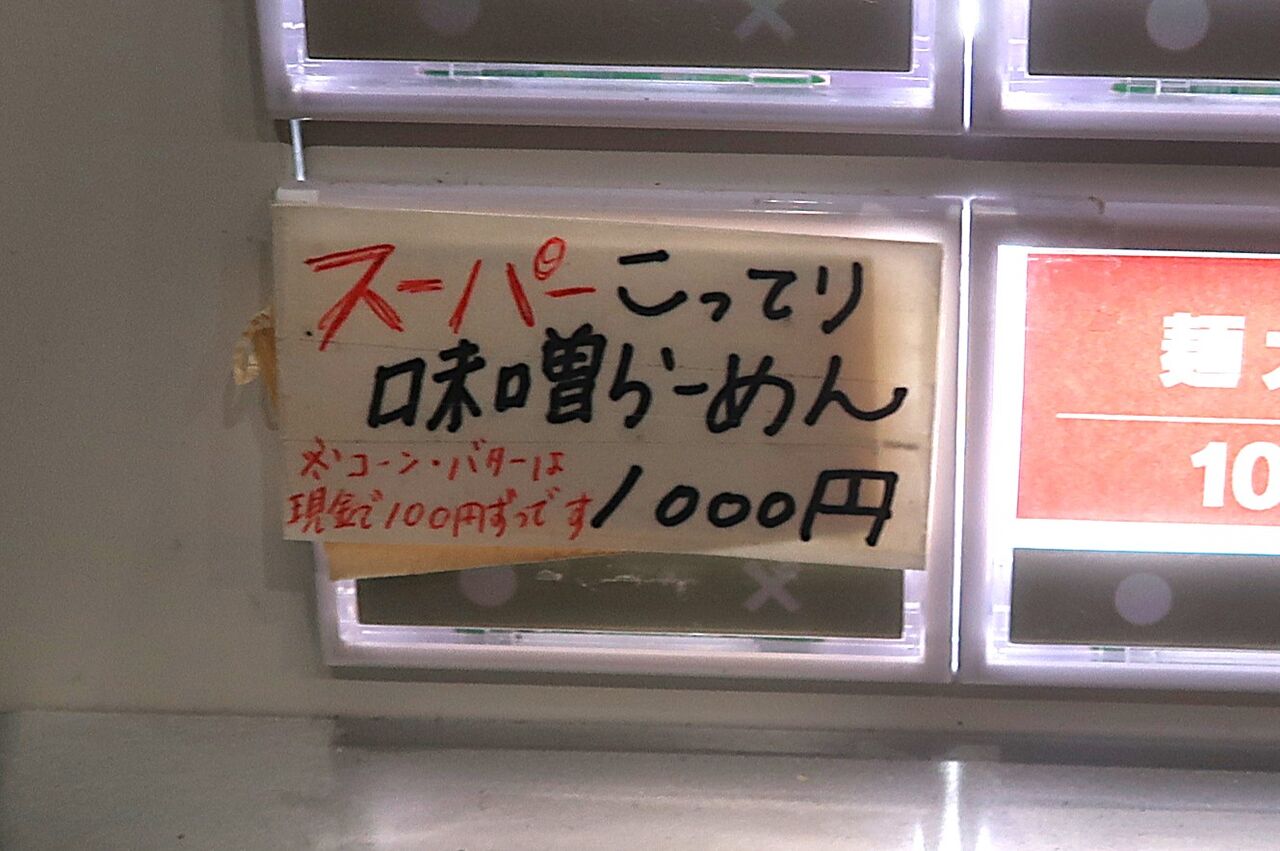 スーパーこってり
味噌らーめん
※コーン・バターは
現金で100円ずつです
1000円
麺
10